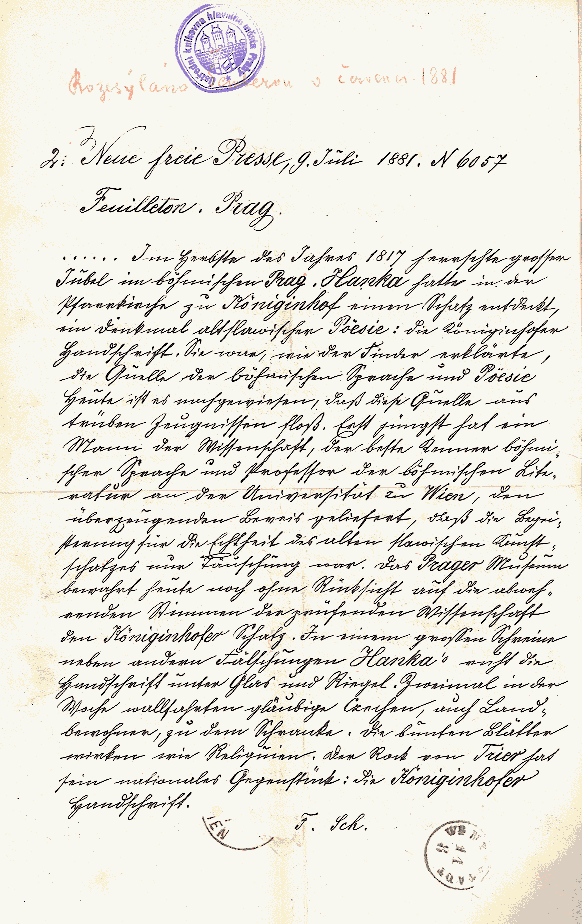 Ústřední knihovna hlavního města Prahy
Rozesýláno v červenci 1881
2. Neue freie Presse, 9. Juli 1881. N 6057
Feuilleton. Prag.
...... Im Herbste des Jahres 1817 herrschte grosser
Jubel im böhmischen Prag. Hanka hatte in der
Pfarrkirche zu Königinhof einen Schatz entdeckt,
ein Denkmal altslawischer Pöesie: die Königinhofer
Handschrift. Sie war, wie der Finder erklärte,
die Quelle der böhmischen Sprache und Pöesie
Heute ist es nachgewiesen, daß diese Quelle aus
trüben Zeugnissen floß. Erst jüngst hat ein
Mann der Wissenschaft, der beste Kenner böhmi-
scher Sprache und Professor der böhmischen Lite-
ratur an der Universität zu Wien, den
überzeugenden Beweis geliefert, daß die Begei-
sterung für die Echtheit des alten slawischen Kunst-
schatzes nur Täuschung war. Das Prager Museum
bewahrt heute noch ohne Rücksicht auf die abweh-
renden Stimmen der prüfenden Wissenschaft
den Königinhofer Schatz. In einem grossen Schreine
neben andern Fälschungen Hanka's ruht die
Handschrift unter Glas und Riegel. Zweimal in der
Woche wallfahrten gläubige Čechen, auch Land-
bewohner, zu dem Schranke. Die bunten Blätter
wirken wie Reliquien. Der Rock von Trier hat
sein nationales Gegenstück: die Königinhofer
Handschrift.
F. Sch.